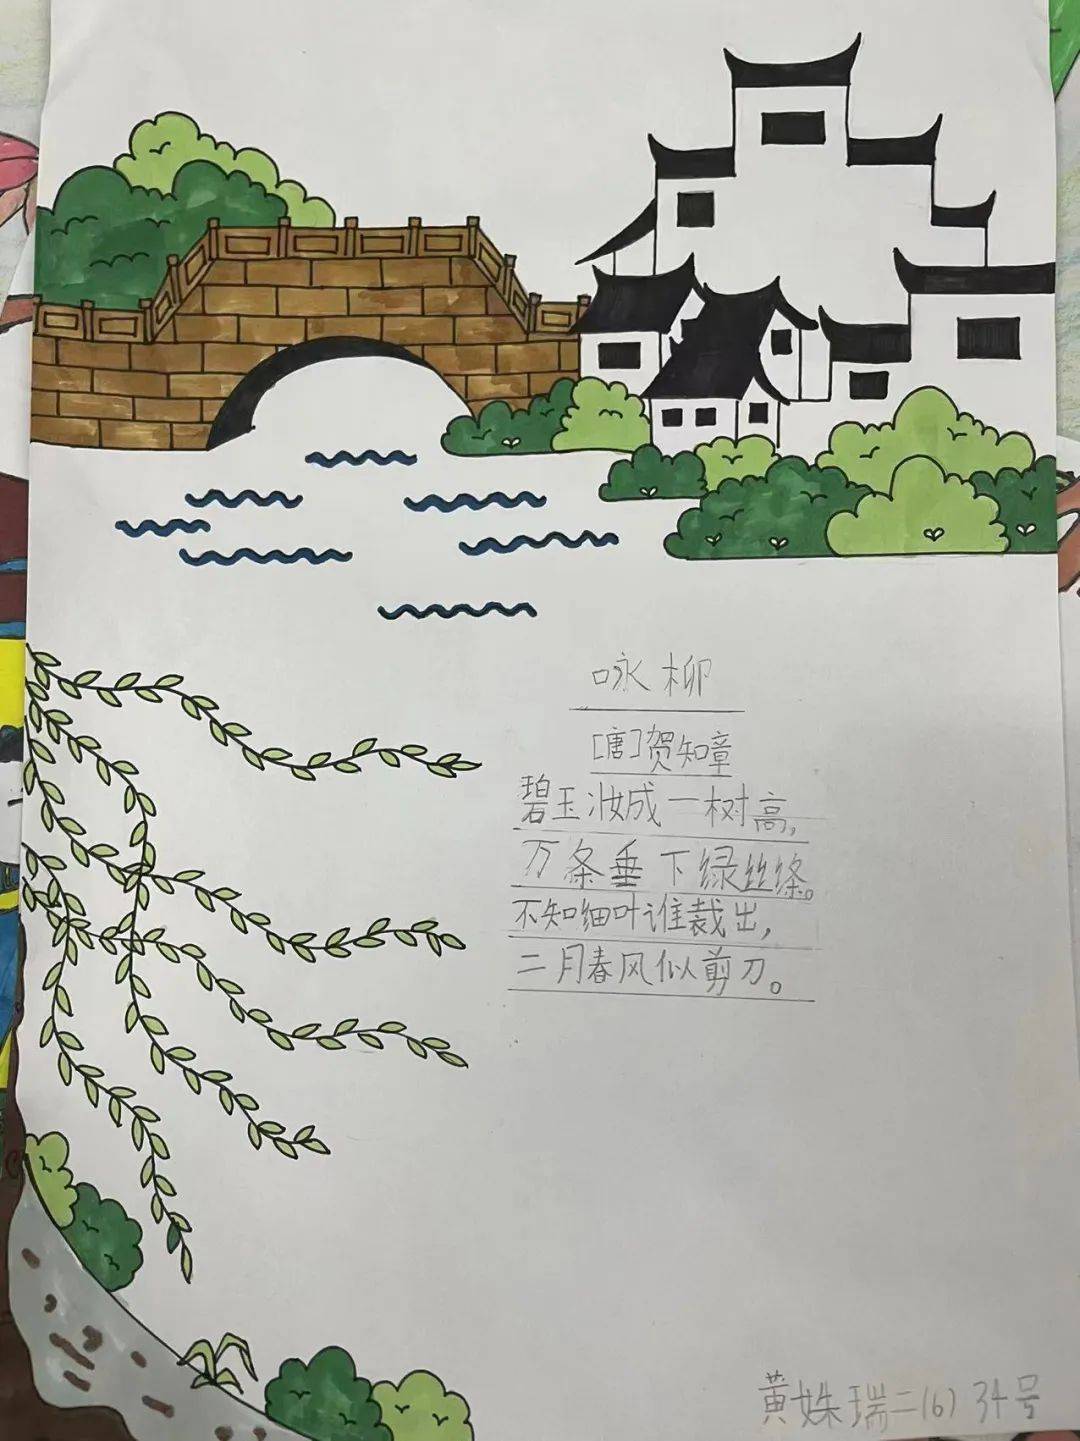 咏柳
[唐]贺知章
碧玉妆成一树高，
万条垂下绿丝绦。
不知细叶谁裁出，
二月春风似剪刀。
黄姝瑞二(6) 34号